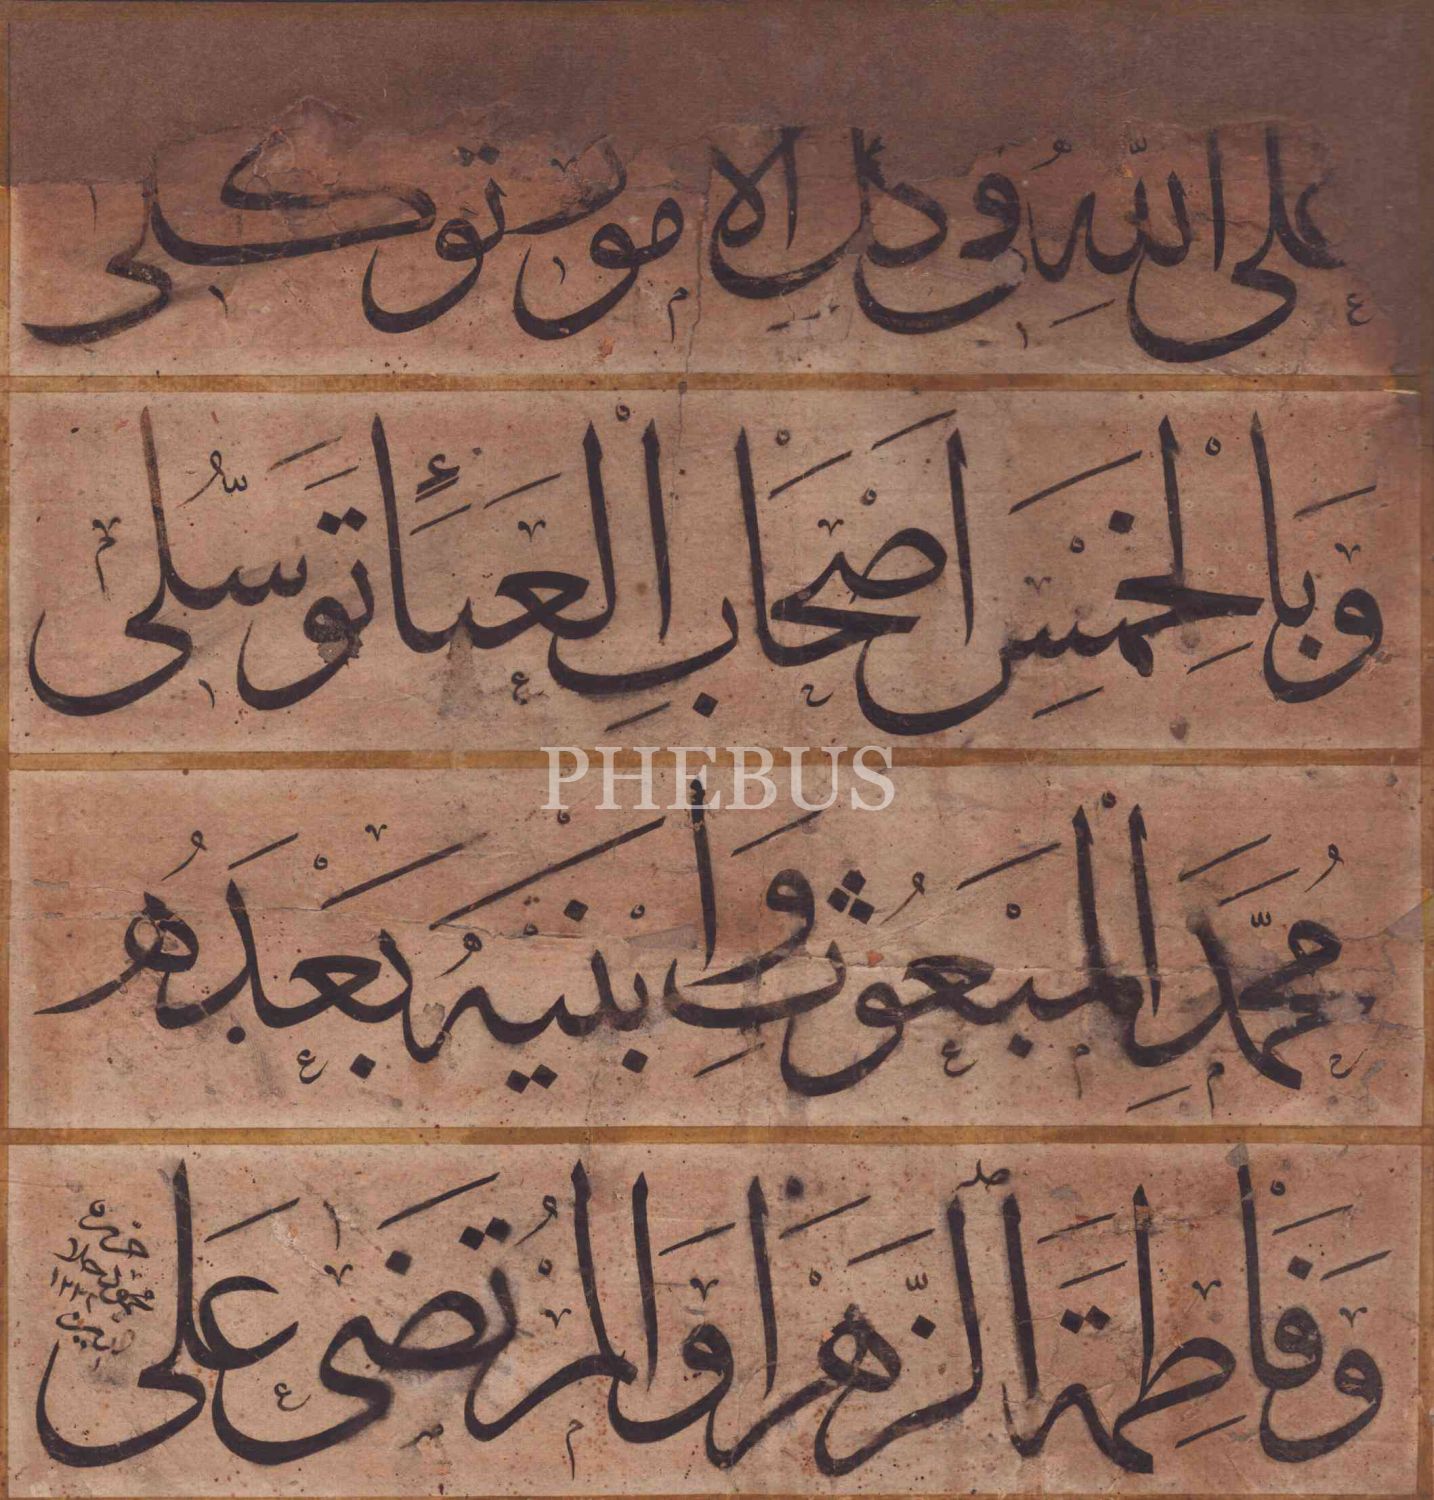 على اللهِ في كل الامور توكلى
وَبِالْخَمْسِ اَصْحَابِ الْعَبَاءِ تَوَسُّلى
مُحَمَّدَ الْمَبْعُوثِ وَاْبْنَيْهُ بَعْدَهُ
وَفَاطِمَةَ الزَّهْرَا وَالْمُرْتَضَى عَلى
PHEBUS